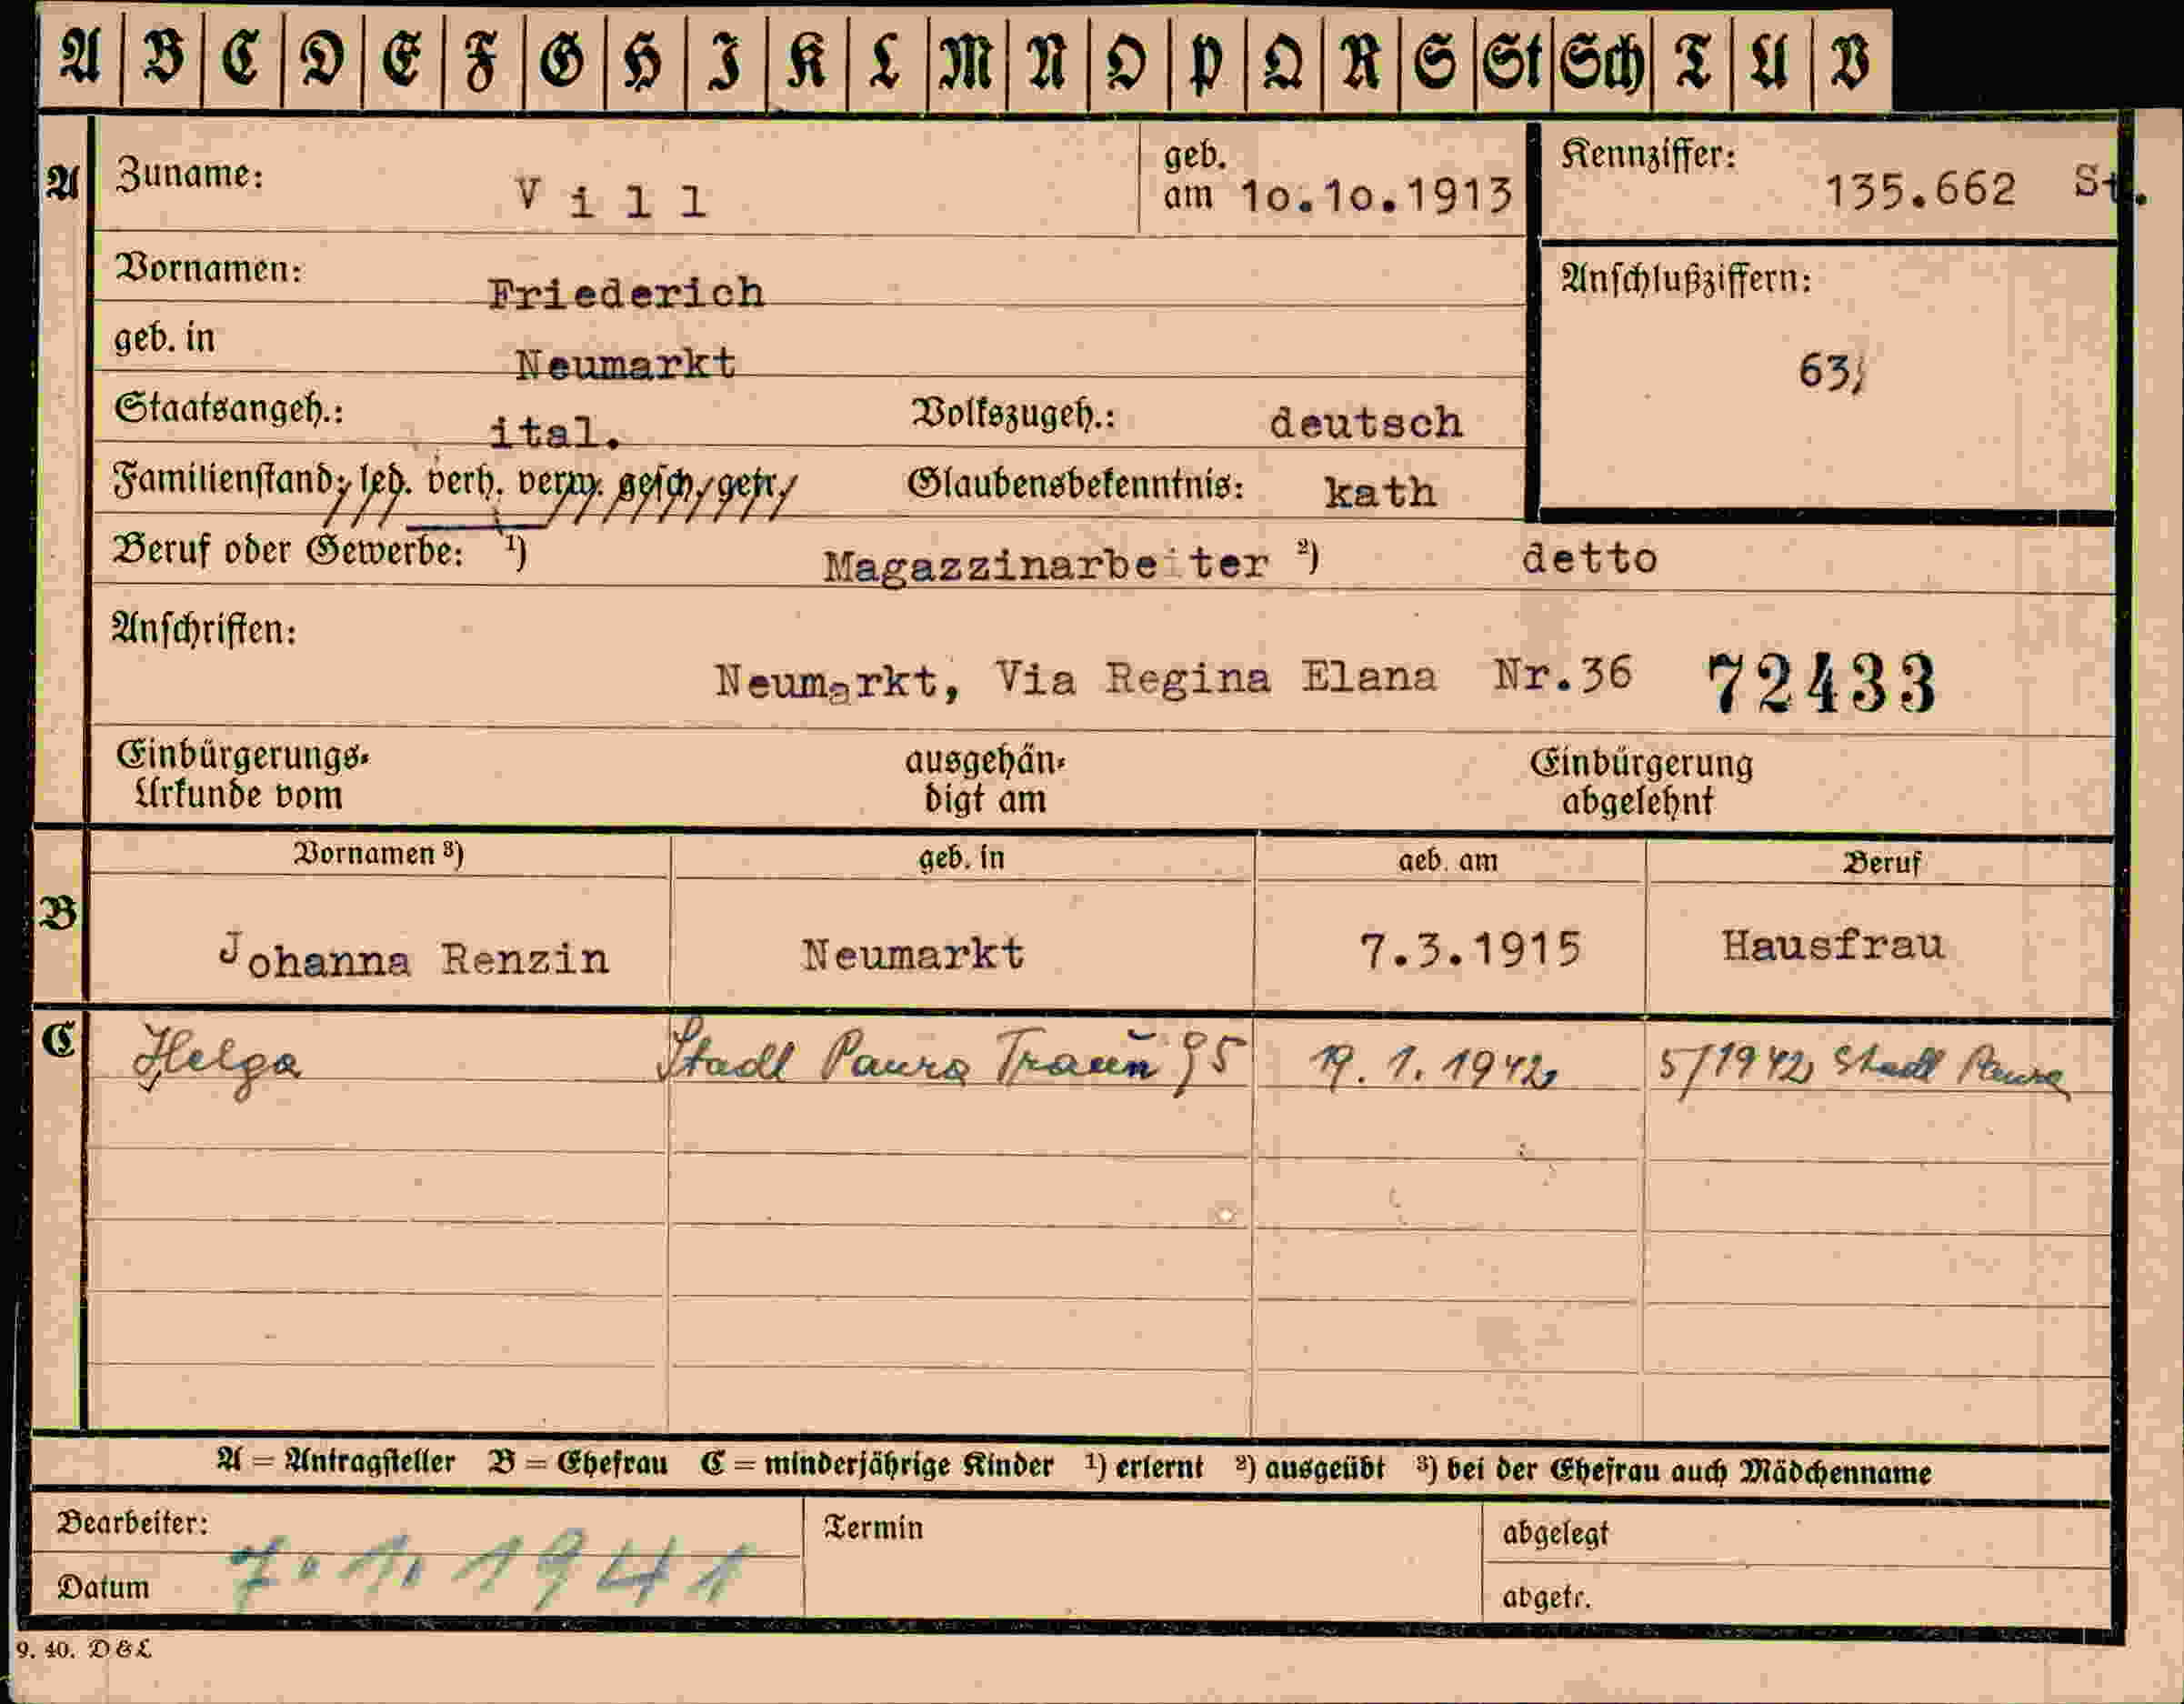 A B C D E F G H I K L M N O P Q R S St Sch T U V
A Zuname: Vill geb. am 10.10.1913 Kennziffer: 135.662 St.
Vornamen: Friederich Anschlußziffern:
geb. in Neumarkt 63;
Staatsangeh.: ital. Volkszugeh.: deutsch
Familienstand: led. verh. verw. gesch. getr. Glaubensbekenntnis: kath
Beruf oder Gewerbe: ¹) Magazzinarbeiter ²) detto
Anschriften:
Neumarkt, Via Regina Elana Nr.36 72433
Einbürgerungs- ausgehän- Einbürgerung
Urkunde vom digt am abgelehnt
Vornamen ³) geb. in geb. am Beruf
B Johanna Renzin Neumarkt 7.3.1915 Hausfrau
C Helga Stadl Paura Traun 95 19. 1. 1942 5/1942, Stadl Paura
A = Antragsteller B = Ehefrau C = minderjährige Kinder ¹) erlernt ²) ausgeübt ³) bei der Ehefrau auch Mädchenname
Bearbeiter: Termin abgelegt
Datum 7. 1. 1941 abgetr.
9. 40. D&L